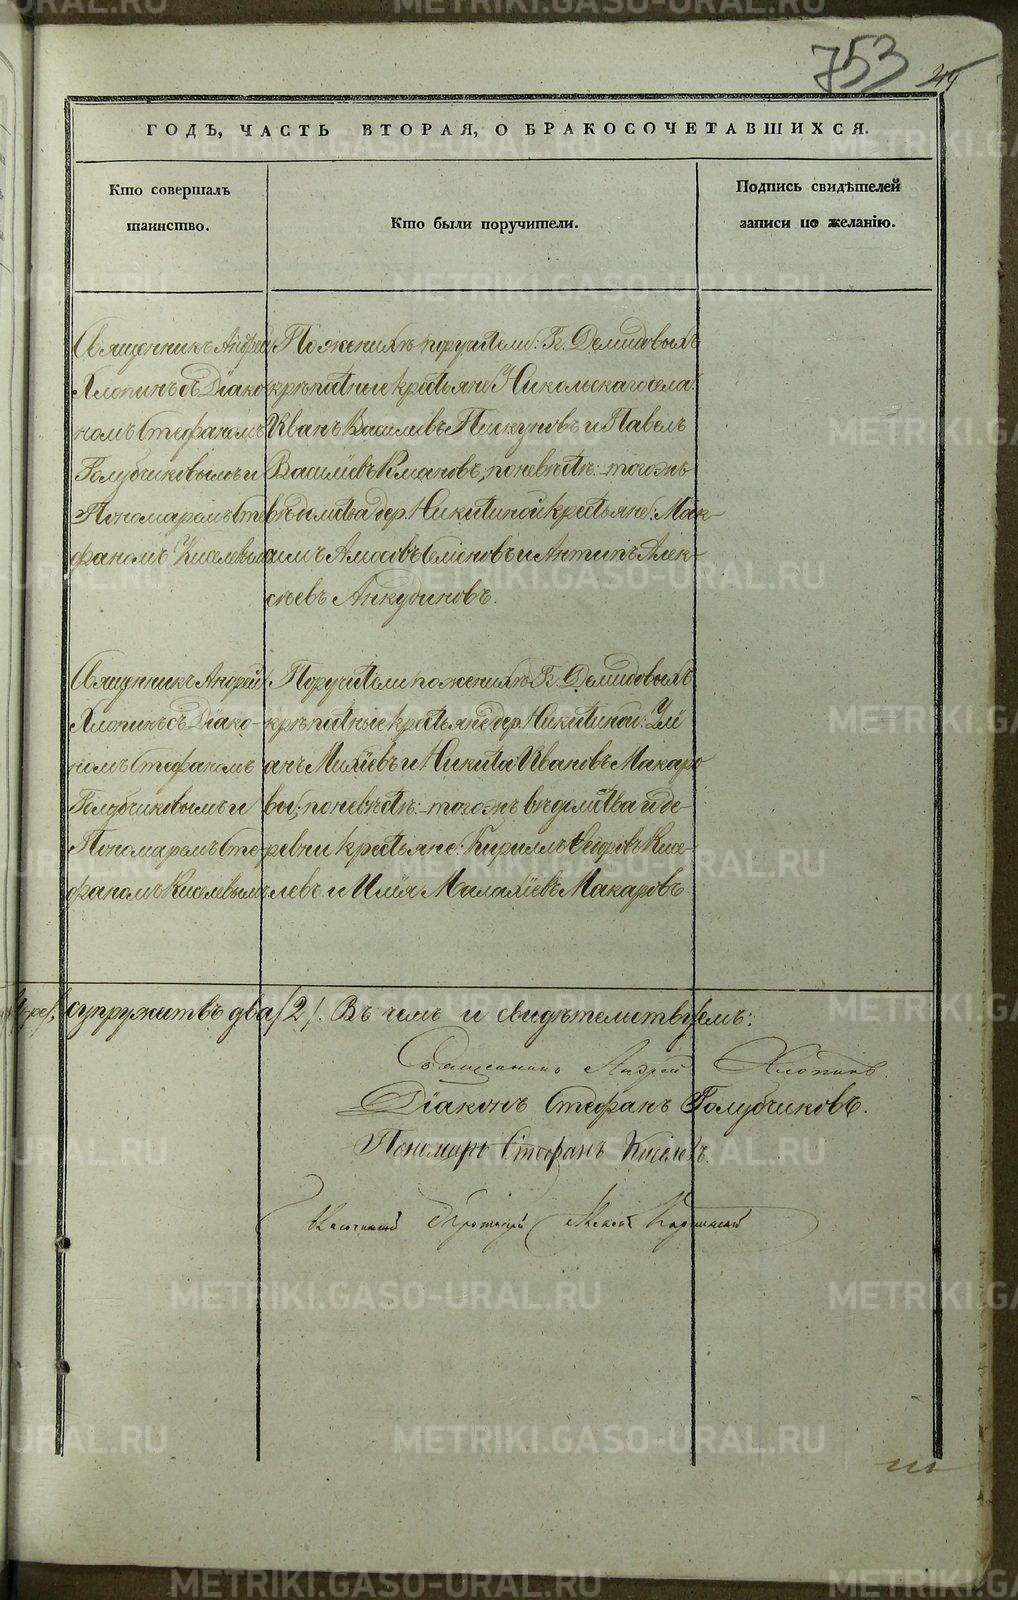 753
ГОДЪ, ЧАСТЬ ВТОРАЯ, О БРАКОСОЧЕТАВШИХСЯ.
Кто совершалъ
таинство.
Кто были поручители.
Подпись свидѣтелей
записи по желанію.
Священникъ Андрей
Хлопинъ съ Діако-
номъ Стефаномъ
Голубчиковымъ и
Пономаремъ Сте
фаномъ Киселевымъ
По женихѣ поручители: Гг. Демидовыхъ
крѣпостные крестьяне Никольскаго села
Иванъ Василіевъ Пискуновъ и Павелъ
Василіевъ Климовъ, по невѣстѣ: тогожъ
вѣдомства дер. Никитиной крестьяне: Мак-
симъ Амосовъ и Антипъ Алек-
сѣевъ Анкудиновъ.
Священникъ Андрей
Хлопинъ съ Діако-
номъ Стефаномъ
Голубчиковымъ и
Пономаремъ Сте
фаномъ Киселевымъ
Поручители по женихѣ Гг. Демидовыхъ
крѣпостные крестьяне дер. Никитиной: Улі
анъ Михѣевъ и Никита Ивановъ Макаро
вы; по невѣстѣ: тогожъ вѣдомства и де-
ревни крестьяне: Кириллъ Ѳедоровъ Кисе-
левъ и Илія Малахіевъ Макаровъ.
супружествъ два /2/. Въ чемъ и свидѣтельствуемъ:
Священникъ Андрей Хлопинъ.
Діаконъ Стефанъ Голубчиковъ.
Пономарь Стефанъ Киселевъ.
METRIKI.GASO-URAL.RU